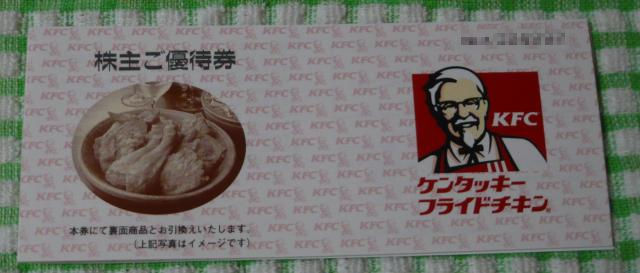 株主ご優待券
KFC
ケンタッキー
フライドチキン
本券にて裏面商品とお引換えいたします。
(上記写真はイメージです)